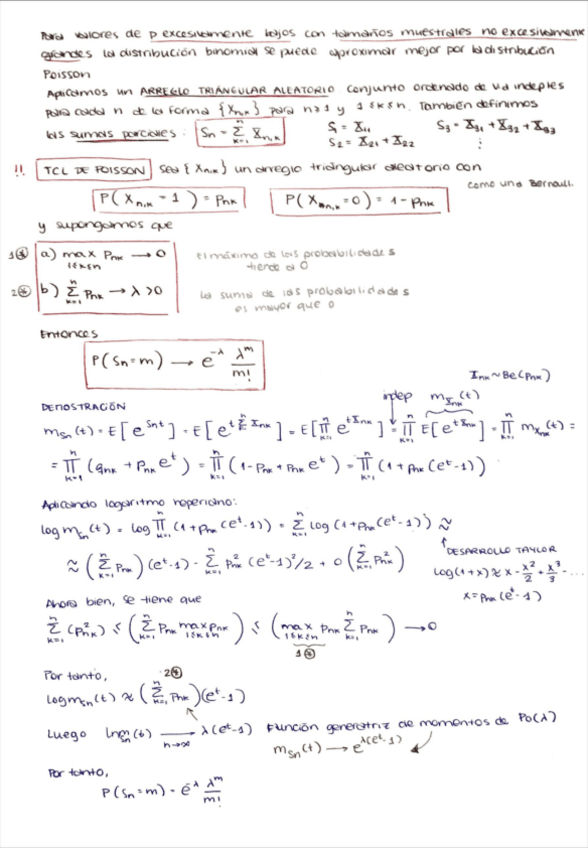 Para valores de p excesivamente bajos con tamaños muestrales no excesivamente
grandes la distribución binomial se puede aproximar mejor por la distribución
Poisson
Aplicamos un ARREGLO TRIANGULAR ALEATORIO conjunto ordenado de v.a indeptes
para cada n de la forma {Xn,k} para n≥1 y 1≤k≤n. También definimos
las sumas parciales: Sn = Σ_{k=1}^{n} X_{n,k} S1 = X11 S3 = X31 + X32 + X33
S2 = X21 + X22 ⋮
!! TCL DE POISSON Sea {Xn,k} un arreglo triangular aleatorio con
P(X_{n,k} = 1) = p_{nk} P(X_{n,k} = 0) = 1 - p_{nk} como una Bernoulli.
y supongamos que
1⊛ a) max_{1≤k≤n} p_{nk} → 0 el máximo de las probabilidades tiende a 0
2⊛ b) Σ_{k=1}^{n} p_{nk} → λ > 0 la suma de las probabilidades es mayor que 0
Entonces
P(Sn = m) → e^{-λ} λ^m / m!
X_{nk} ~ Be(p_{nk})
DEMOSTRACIÓN indep m_{X_{nk}}(t)
m_{Sn}(t) = E[e^{Sn t}] = E[e^{t Σ_{k=1}^{n} X_{nk}}] = E[Π_{k=1}^{n} e^{t X_{nk}}] = Π_{k=1}^{n} E[e^{t X_{nk}}] = Π_{k=1}^{n} m_{X_{nk}}(t) =
= Π_{k=1}^{n} (q_{nk} + p_{nk} e^t) = Π_{k=1}^{n} (1 - p_{nk} + p_{nk} e^t) = Π_{k=1}^{n} (1 + p_{nk}(e^t - 1))
Aplicando logaritmo neperiano:
log m_{Sn}(t) = log Π_{k=1}^{n} (1 + p_{nk}(e^t - 1)) = Σ_{k=1}^{n} log(1 + p_{nk}(e^t - 1)) ≈
≈ (Σ_{k=1}^{n} p_{nk})(e^t - 1) - Σ_{k=1}^{n} p_{nk}^2 (e^t - 1)^2/2 + o(Σ_{k=1}^{n} p_{nk}^2)
DESARROLLO TAYLOR
log(1+x) ≈ x - x^2/2 + x^3/3 - ...
x = p_{nk}(e^t - 1)
Ahora bien, se tiene que
Σ_{k=1}^{n} (p_{nk}^2) ≤ (Σ_{k=1}^{n} p_{nk} max_{1≤k≤n} p_{nk}) ≤ (max_{1≤k≤n} p_{nk} Σ_{k=1}^{n} p_{nk}) → 0
1⊛
Por tanto, 2⊛
log m_{Sn}(t) ≈ (Σ_{k=1}^{n} p_{nk})(e^t - 1)
Luego ln m_{Sn}(t) →_{n→∞} λ(e^t - 1) Función generatriz de momentos de Po(λ)
m_{Sn}(t) → e^{λ(e^t - 1)}
Por tanto,
P(Sn = m) = e^{-λ} λ^m / m!